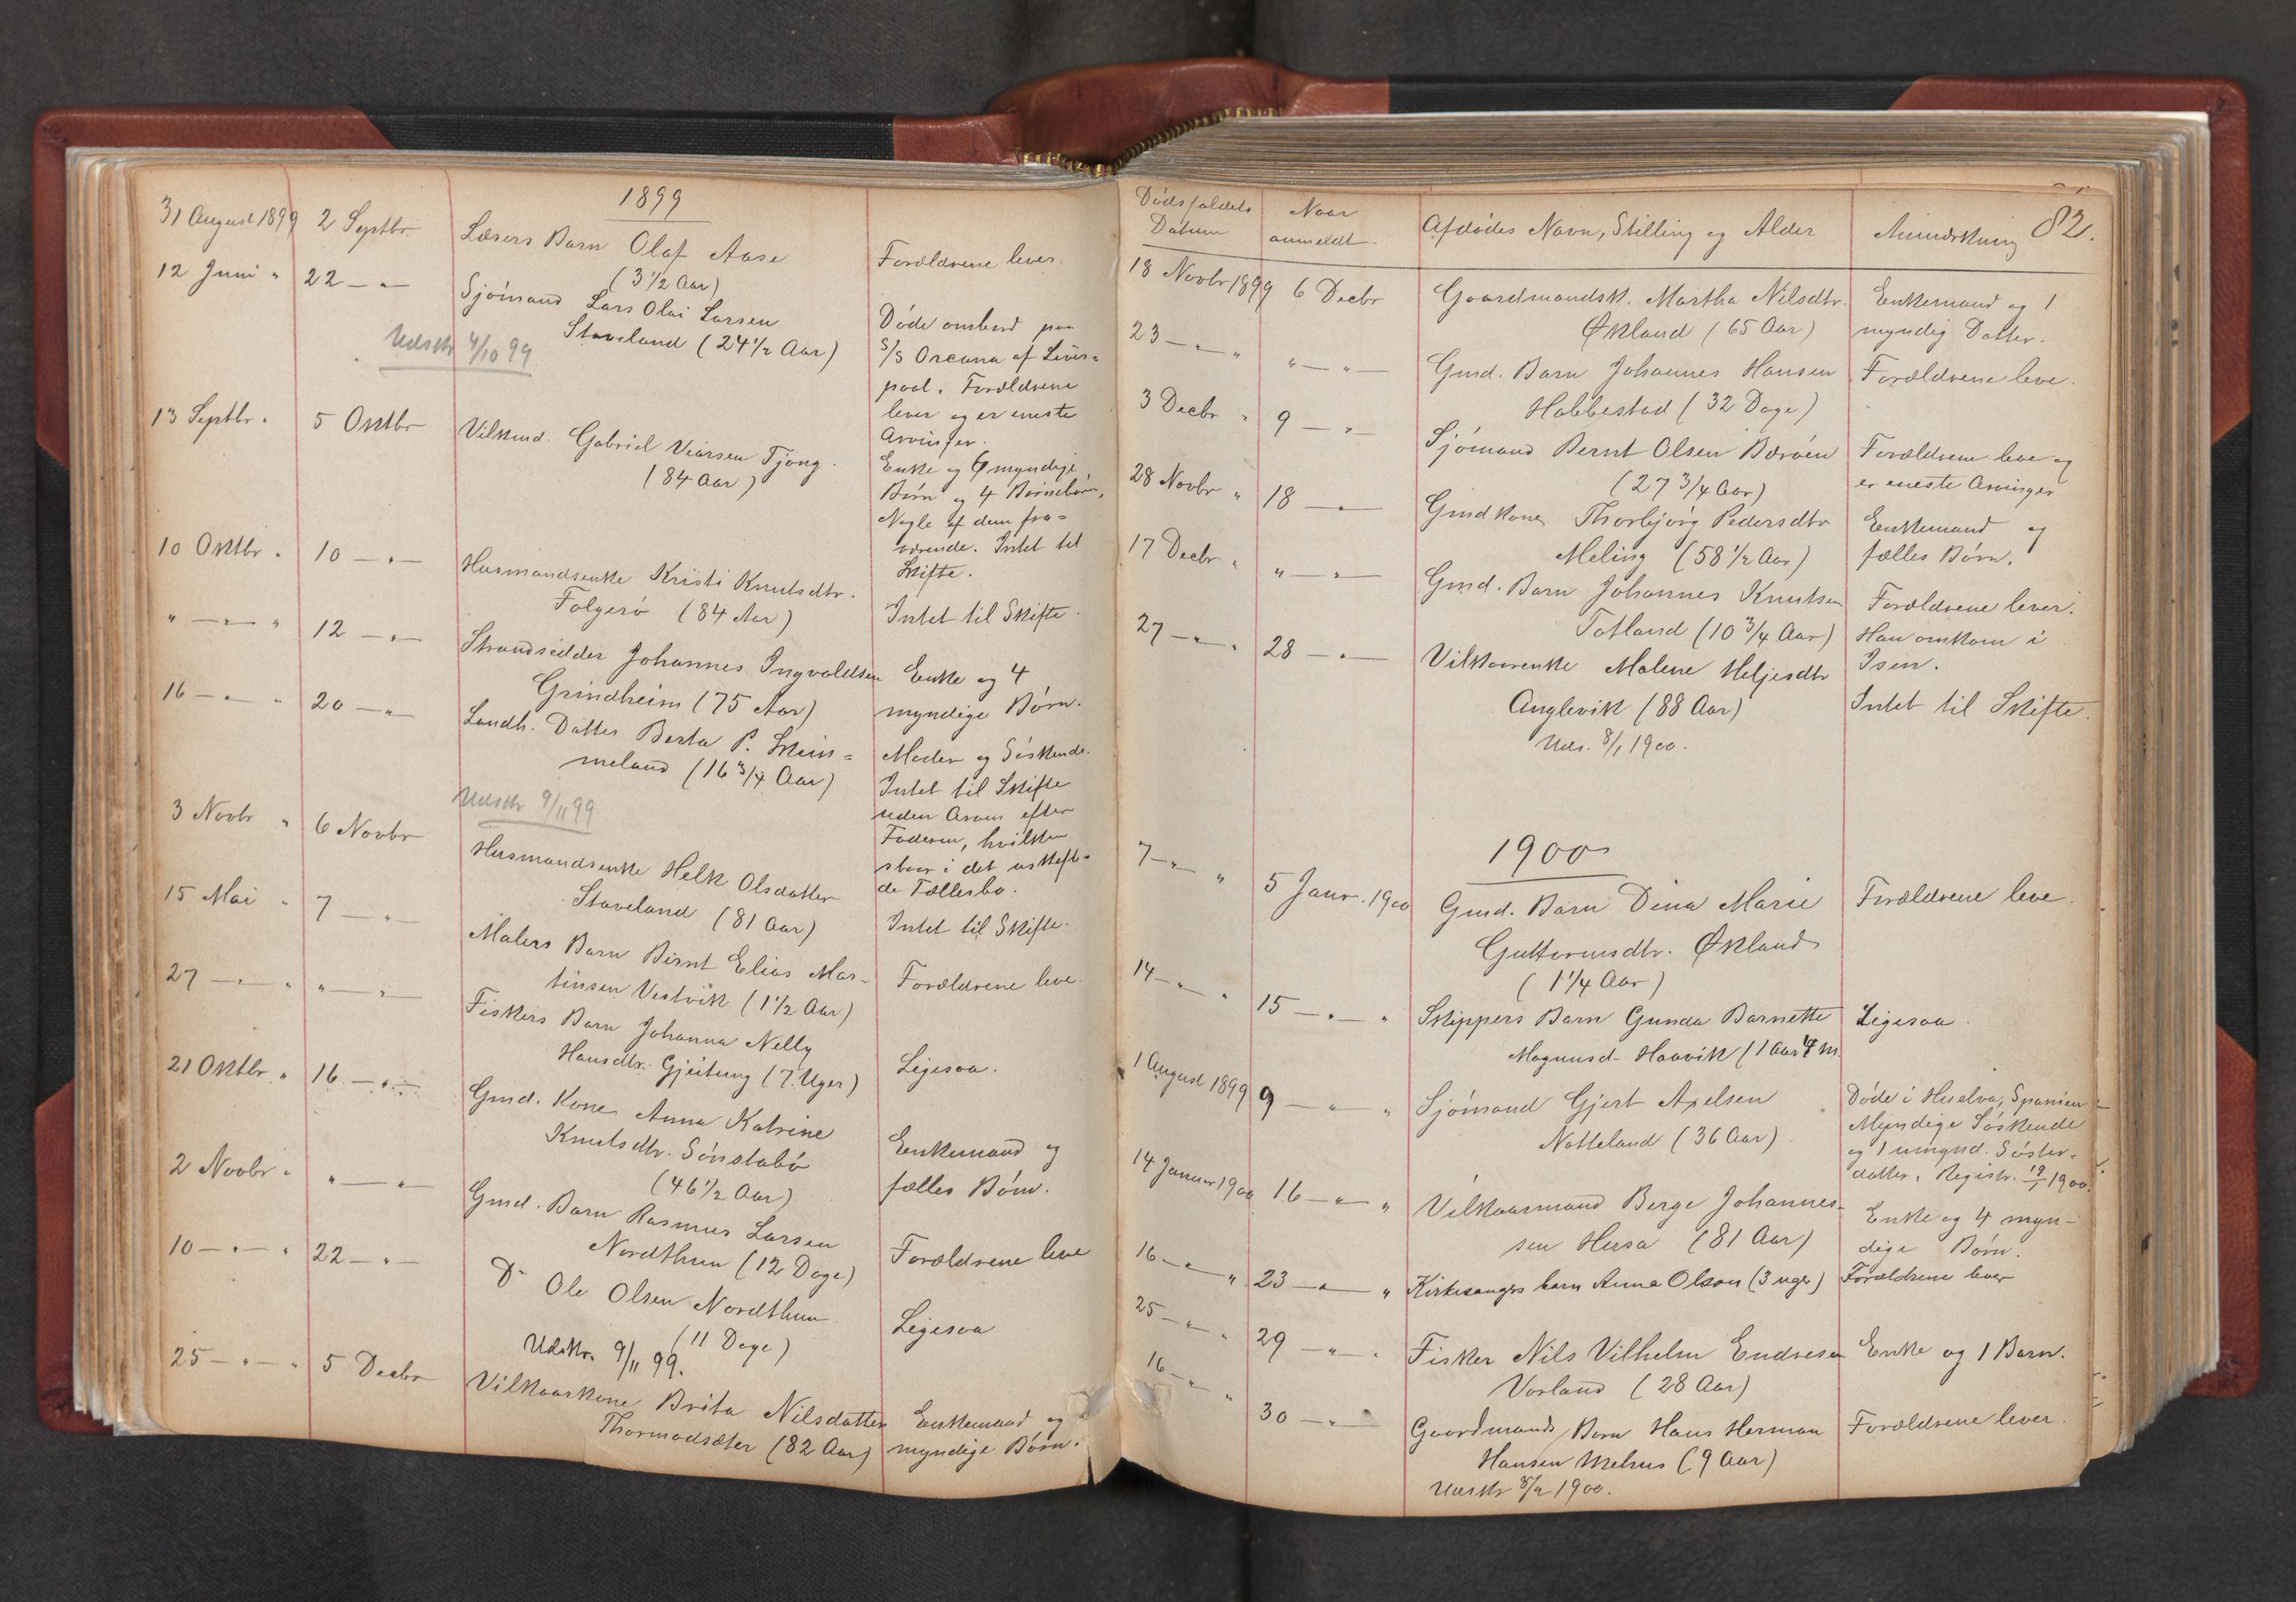 1899
31 August 1899 2 Septbr. Læsers Barn Olaf Aase Forældrene lever.
(3 1/2 Aar)
12 Juni " 22 — " — Sjömand Lars Olai Larsen Döde ombord paa
Staveland (24 1/2 Aar) S/S Orcana af Liver=
Udskr 4/10 99 pool. Forældrene
lever og er eneste
Arvinger.
13 Septbr. " 5 Oktbr Vilkmd. Gabriel Viarsen Tjong. Enke og 6 myndige
(84 Aar) Börn og 4 Börnebörn,
Nogle af dem fra=
værende. Intet til
Skifte.
10 Oktbr. " 10 — " — Husmandsenke Kristi Knutsdtr. Intet til Skifte.
Folgerö (84 Aar)
" — " — " 12 — " — Strandsidder Johannes Ingvaldsen Enke og 4
Grindheim (75 Aar) myndige Börn.
16 — " — " 20 — " — Landh. Datter Berta P. Skim= Moder og Söskende.
meland (16 3/4 Aar) Intet til Skifte
Udskr 9/11 99 uden Arven efter
Faderen, hvilken
staar i det uskift=
de Fællesbo.
3 Novbr " 6 Novbr Husmandsenke Helk Olsdatter Intet til Skifte.
Staveland (81 Aar)
15 Mai " 7 — " — Malers Barn Birnt Elias Mar- Forældrene leve.
tinsen Vestvik (1 1/2 Aar)
27 — " — " " — " — Fiskers Barn Johanna Nelly Ligesaa.
Hansdtr. Gjeitung (7 Uger)
21 Oktbr. " 16 — " — Gmd. Kone Anna Katrine Enkemand og
Knutsdtr. Sönstabö fælles Börn.
(46 1/2 Aar)
2 Novbr " " — " — Gmd. Barn Rasmus Larsen Forældrene leve
Nordthun (12 Dage)
10 — " — " 22 — " — Do Ole Olsen Nordthun Ligesaa
(11 Dage)
Udskr. 9/11 99.
25 — " — " 5 Decbr Vilkaarskone Brita Nilsdatter Enkemand og
Thormodsæter (82 Aar) myndige Börn.
82.
Dödsfaldets Naar Afdödes Navn, Stilling og Alder Anmærkning
Datum anmeldt.
18 Novbr 1899 6 Decbr Gaardmandsk. Martha Nilsdtr. Enkemand og 1
Økland (65 Aar) myndig Datter.
23 — " — " " — " — Gmd. Barn Johannes Hansen Forældrene leve.
Habbestad (32 Dage)
3 Decbr " 9 — " — Sjömand Bernt Olsen Børöen Forældrene leve og
(27 3/4 Aar) er eneste Arvinger
28 Novbr " 18 — " — Gmdkone Thorbjörg Pedersdtr Enkemand og
Meling (58 1/2 Aar) fælles Börn.
17 Decbr " " — " — Gmd. Barn Johannes Knutsen Forældrene lever.
Totland (10 3/4 Aar) Han omkom i
Isen.
27 — " — " 28 — " — Vilkaarenke Malene Heljesdtr Intet til Skifte.
Anglevik (88 Aar)
Uds. 8/1 1900.
1900
7 — " — " 5 Janr. 1900 Gmd. Barn Dina Marie Forældrene leve.
Guttormsdtr. Økland
(1 1/4 Aar)
14 — " — " 15 — " — " Skippers Barn Gunda Barnette Ligesaa.
Magnusd- Haavik (1 Aar 4 M.
1 August 1899 9 — " — " Sjömand Gjert Axelsen Döde i Huelva, Spanien
Natteland (36 Aar) Myndige Söskende
og 1 umynd. Söster=
datter. Registr. 19/1 1900.
14 Januar 1900 16 — " — " Vilkaarmand Berge Johannes- Enke og 4 myn-
sen Husa (81 Aar) dige Börn.
16 — " — " 23 — " — " Kirkesangers barn Anna Olson (3 uger) Forældrene lever
25 — " — " 29 — " — " Fisker Nils Vilhelm Endresen Enke og 1 Barn.
Vorland (28 Aar)
16 — " — " 30 — " — Gaardmands Barn Hans Herman Forældrene lever.
Hansen Mehus (9 Aar)
Udskr 3/2 1900.